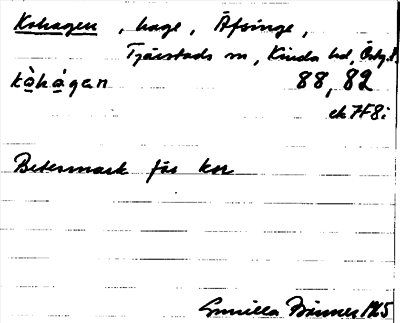 Kohagen, hage, Äfsinge,
Tjärstads sn, Kinda hd, Östg.
kòhágan 88, 82
ek 7F8i
Betesmark för kor
Gunilla 1925